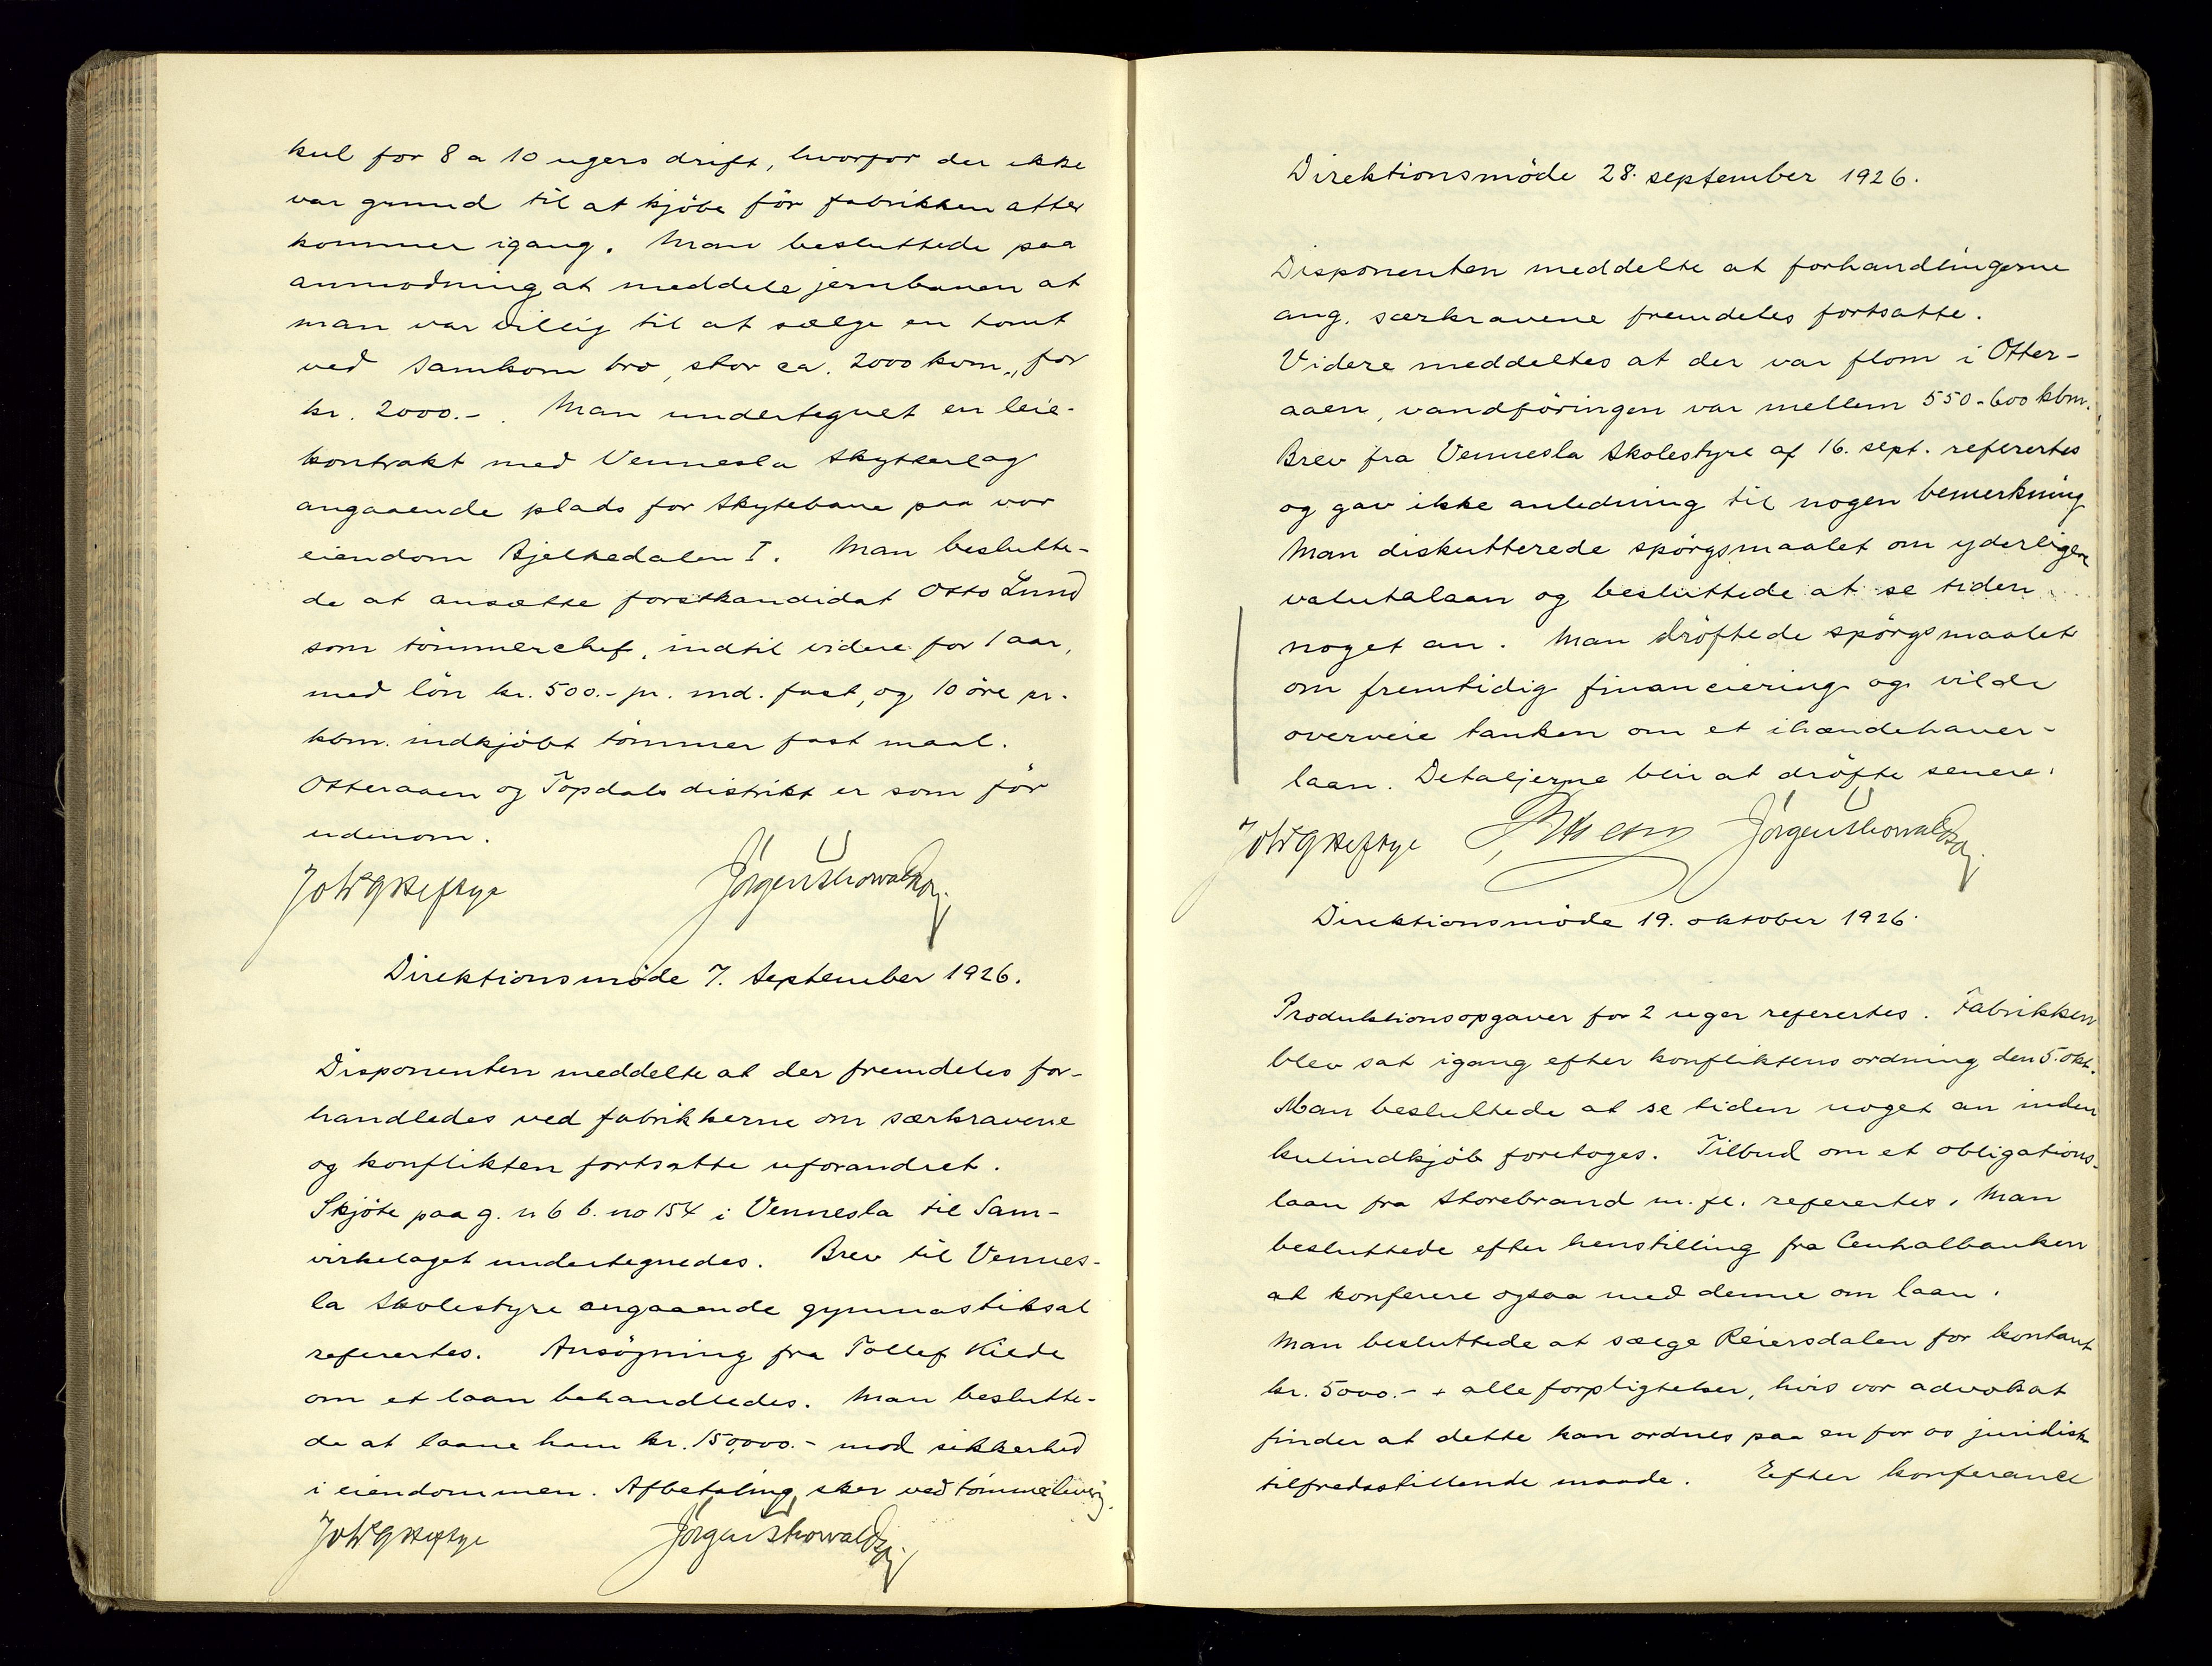 kul for 8 a 10 ugers drift, hvorfor der ikke
var grund til at kjöbe för fabrikken atter
kommer igang. Man besluttede paa
anmodning at meddele jernbanen at
man var villig til at sælge en tomt
ved Samkom bro, stor ca. 2000 kvm., for
kr. 2000.-. Man undertegnet en leie-
kontrakt med Vennesla Skytterlag
angaaende plads for Skytebane paa vor
eiendom Bjelkedalen I. Man beslutte-
de at ansætte forstkandidat Otto Lund
som tömmerchef, indtil videre for 1 aar,
med lön kr. 500.- pr. md. fast, og 10 öre pr.
kbm. indkjöbt tömmer fast maal.
Otteraaen og Topdals distrikt er som för
udenom.
Joh Heftye Jörgen Thorwaldson j.
Direktionsmöde 7. September 1926.
Disponenten meddelte at der fremdeles for-
handledes ved fabrikkerne om særkravene
og konflikten fortsatte uforandret.
Skjöte paa g. n 6 b. no 154 i Vennesla til Sam-
virkelaget undertegnedes. Brev til Vennes-
la Skolestyre angaaende gymnastiksal
refertes. Ansögning fra Tollef Kilde
om et laan behandledes. Man beslutte-
de at laane ham kr. 150,000.- mod sikkerhed
i eiendommen. Afbetaling sker ved tömmerlever.
Joh Heftye Jörgen Thorwaldson j.
Direktionsmöde 28. september 1926.
Disponenten meddelte at forhandlingerne
ang. særkravene fremdeles fortsatte.
Videre meddeltes at der var flom i Otter-
aaen, vandföringen var mellem 550-600 kbm.
Brev fra Vennesla Skolestyre af 16. sept. refertes
og gav ikke anledning til nogen bemerkning
Man diskutterede spörgsmaalet om yderligere
valutalaan og besluttede at se tiden
noget an. Man dröftede spörgsmaalet
om fremtidig financiering og vilde
overveie tanken om et ihændehaver-
laan. Detaljerne blir at dröfte senere.
Joh Heftye Jörgen Thorwaldson j.
Direktionsmöde 19. oktober 1926.
Produktionsopgaver for 2 uger refertes. Fabrikken
blev sat igang efter konfliktens ordning den 5. okt.
Man besluttede at se tiden noget an inden
kulindkjöb foretoges. Tilbud om et obligations-
laan fra Storebrand m. fl. refertes. Man
besluttede efter henstilling fra Centralbanken
at konferere ogsaa med denne om laan.
Man besluttede at sælge Reiersdalen for kontant
kr. 5000.- + alle forpligtelser, hvis vor advokat
finder at dette kan ordnes paa en for os juridisk
tilfredsstillende maade. Efter konferance